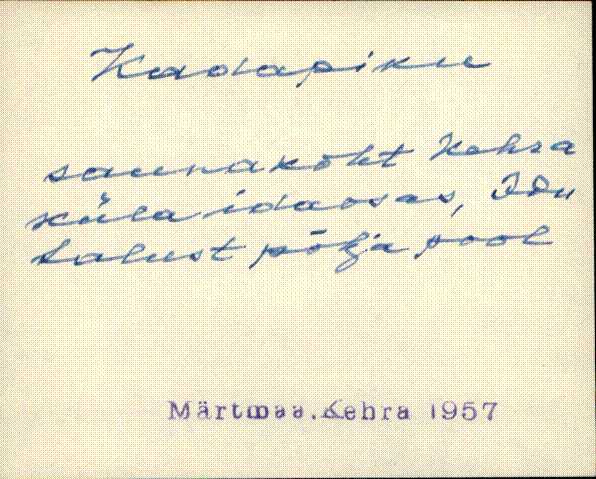 Kadapiku
saunakõht Kehra
küla idaosas, Idu
talust põhja pool
Märtmaa.Kehra 1957